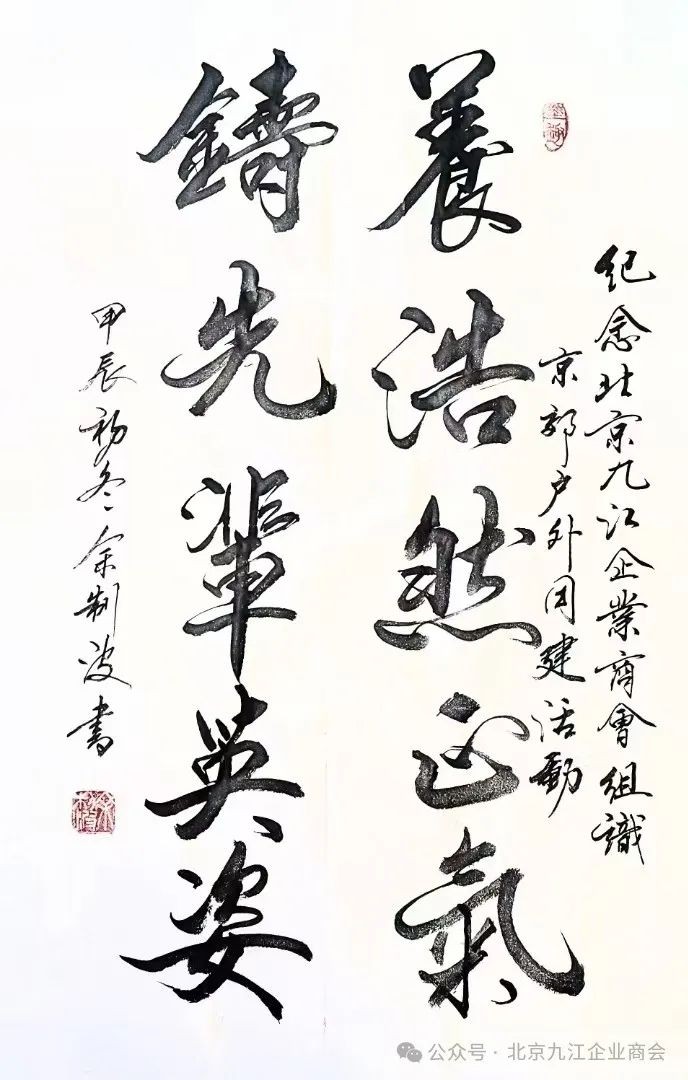 纪念北京九江企業商會组識
京郊户外团建活動
養浩然正氣
鑄先輩英姿
甲辰初冬余制波書
公众号·北京九江企业商会